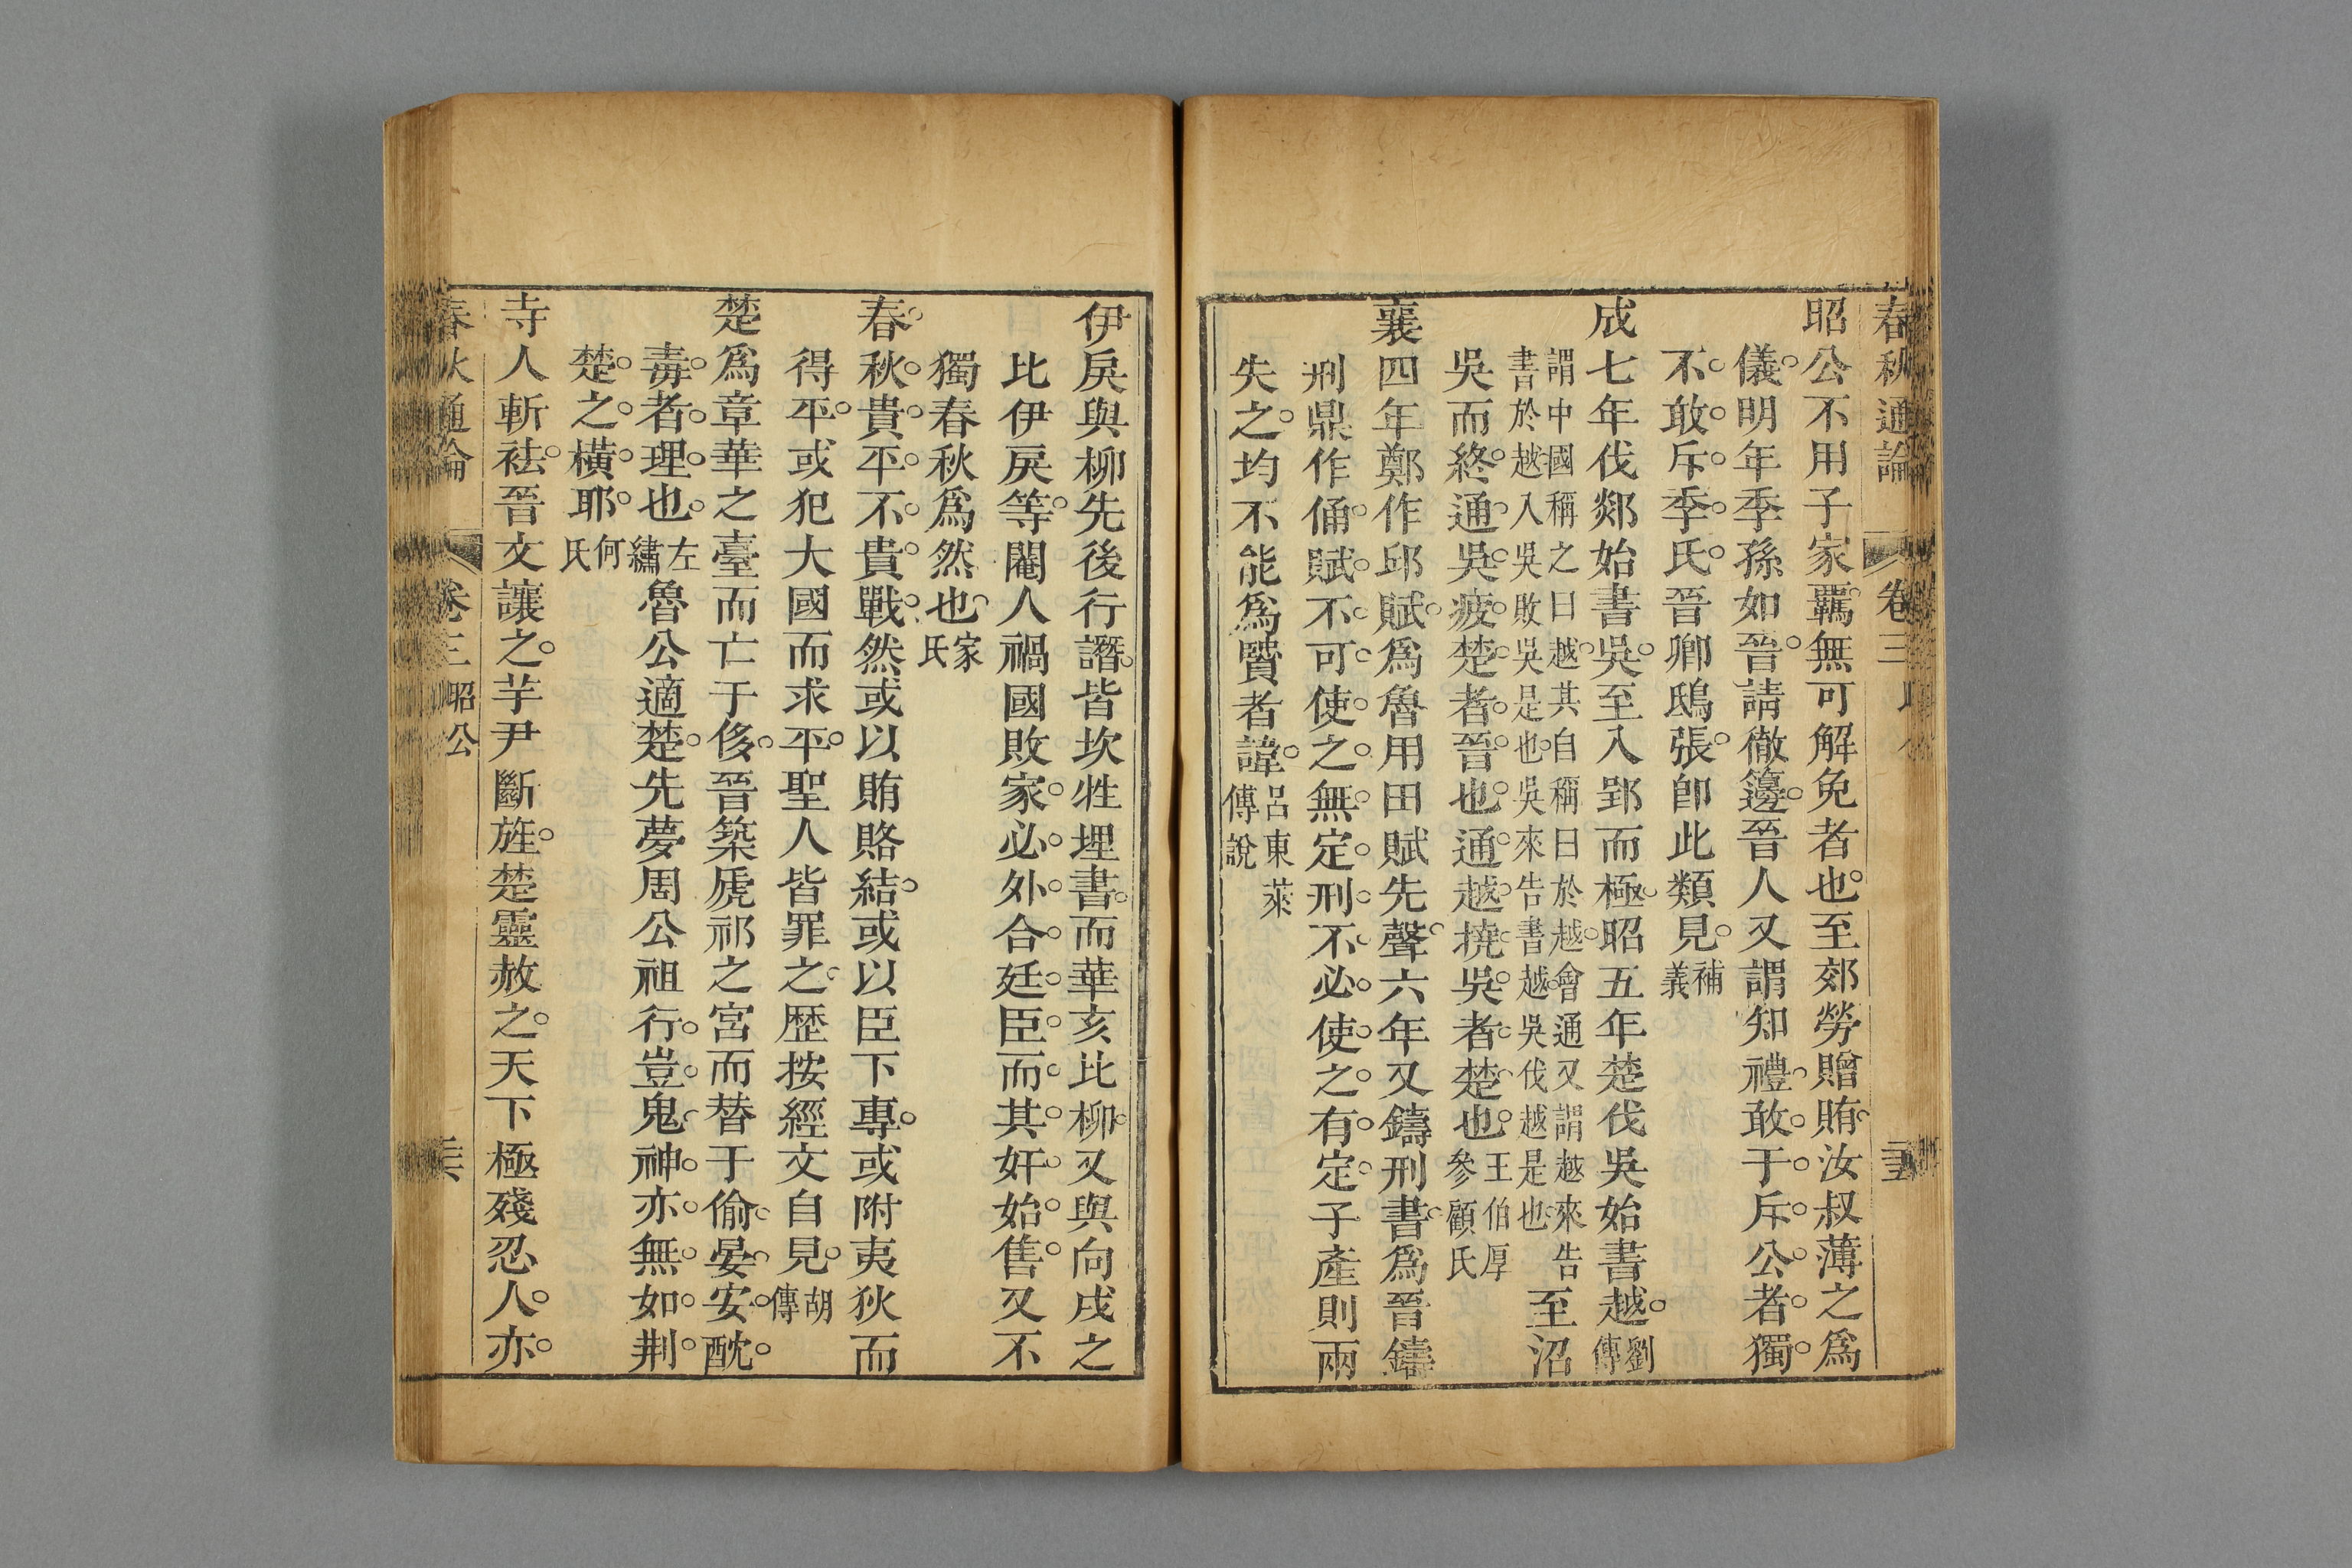 春秋通論 卷三
昭公不用子家羈無可解免者也至郊勞贈賄汝叔薄之爲
儀明年季孫如晉請徹籩晉人又謂知禮敢于斥公者獨
不敢斥季氏晉卿鴟張卽此類見補義
成七年伐郯始書吳至入郢而極昭五年楚伐吳始書越劉傳
謂中國稱之曰越其自稱曰於越會通又謂越來告
書於越入吳敗吳是也吳來告書越吳伐越是也
至沼
吳而終通吳疲楚者晉也通越撓吳者楚也王伯厚參顧氏
襄四年鄭作邱賦爲魯用田賦先聲六年又鑄刑書爲晉鑄
刑鼎作俑賦不可使之無定刑不必使之有定子產則兩
失之均不能爲賢者諱呂東萊傳說
伊戾與柳先後行譖皆坎牲埋書而華亥比柳又與向戌之
比伊戾等閹人禍國敗家必外合廷臣而其奸始售又不
獨春秋爲然也家氏
春秋貴平不貴戰然或以賄賂結或以臣下專或附夷狄而
得平或犯大國而求平聖人皆罪之歷按經文自見胡傳
楚爲章華之臺而亡于侈晉築虒祁之宮而替于偷晏安酖
毒者理也左繡魯公適楚先夢周公祖行豈鬼神亦無如荆
楚之橫耶何氏
寺人斬袪晉文讓之芋尹斷旌楚靈赦之天下極殘忍人亦
春秋通論 卷三 昭公